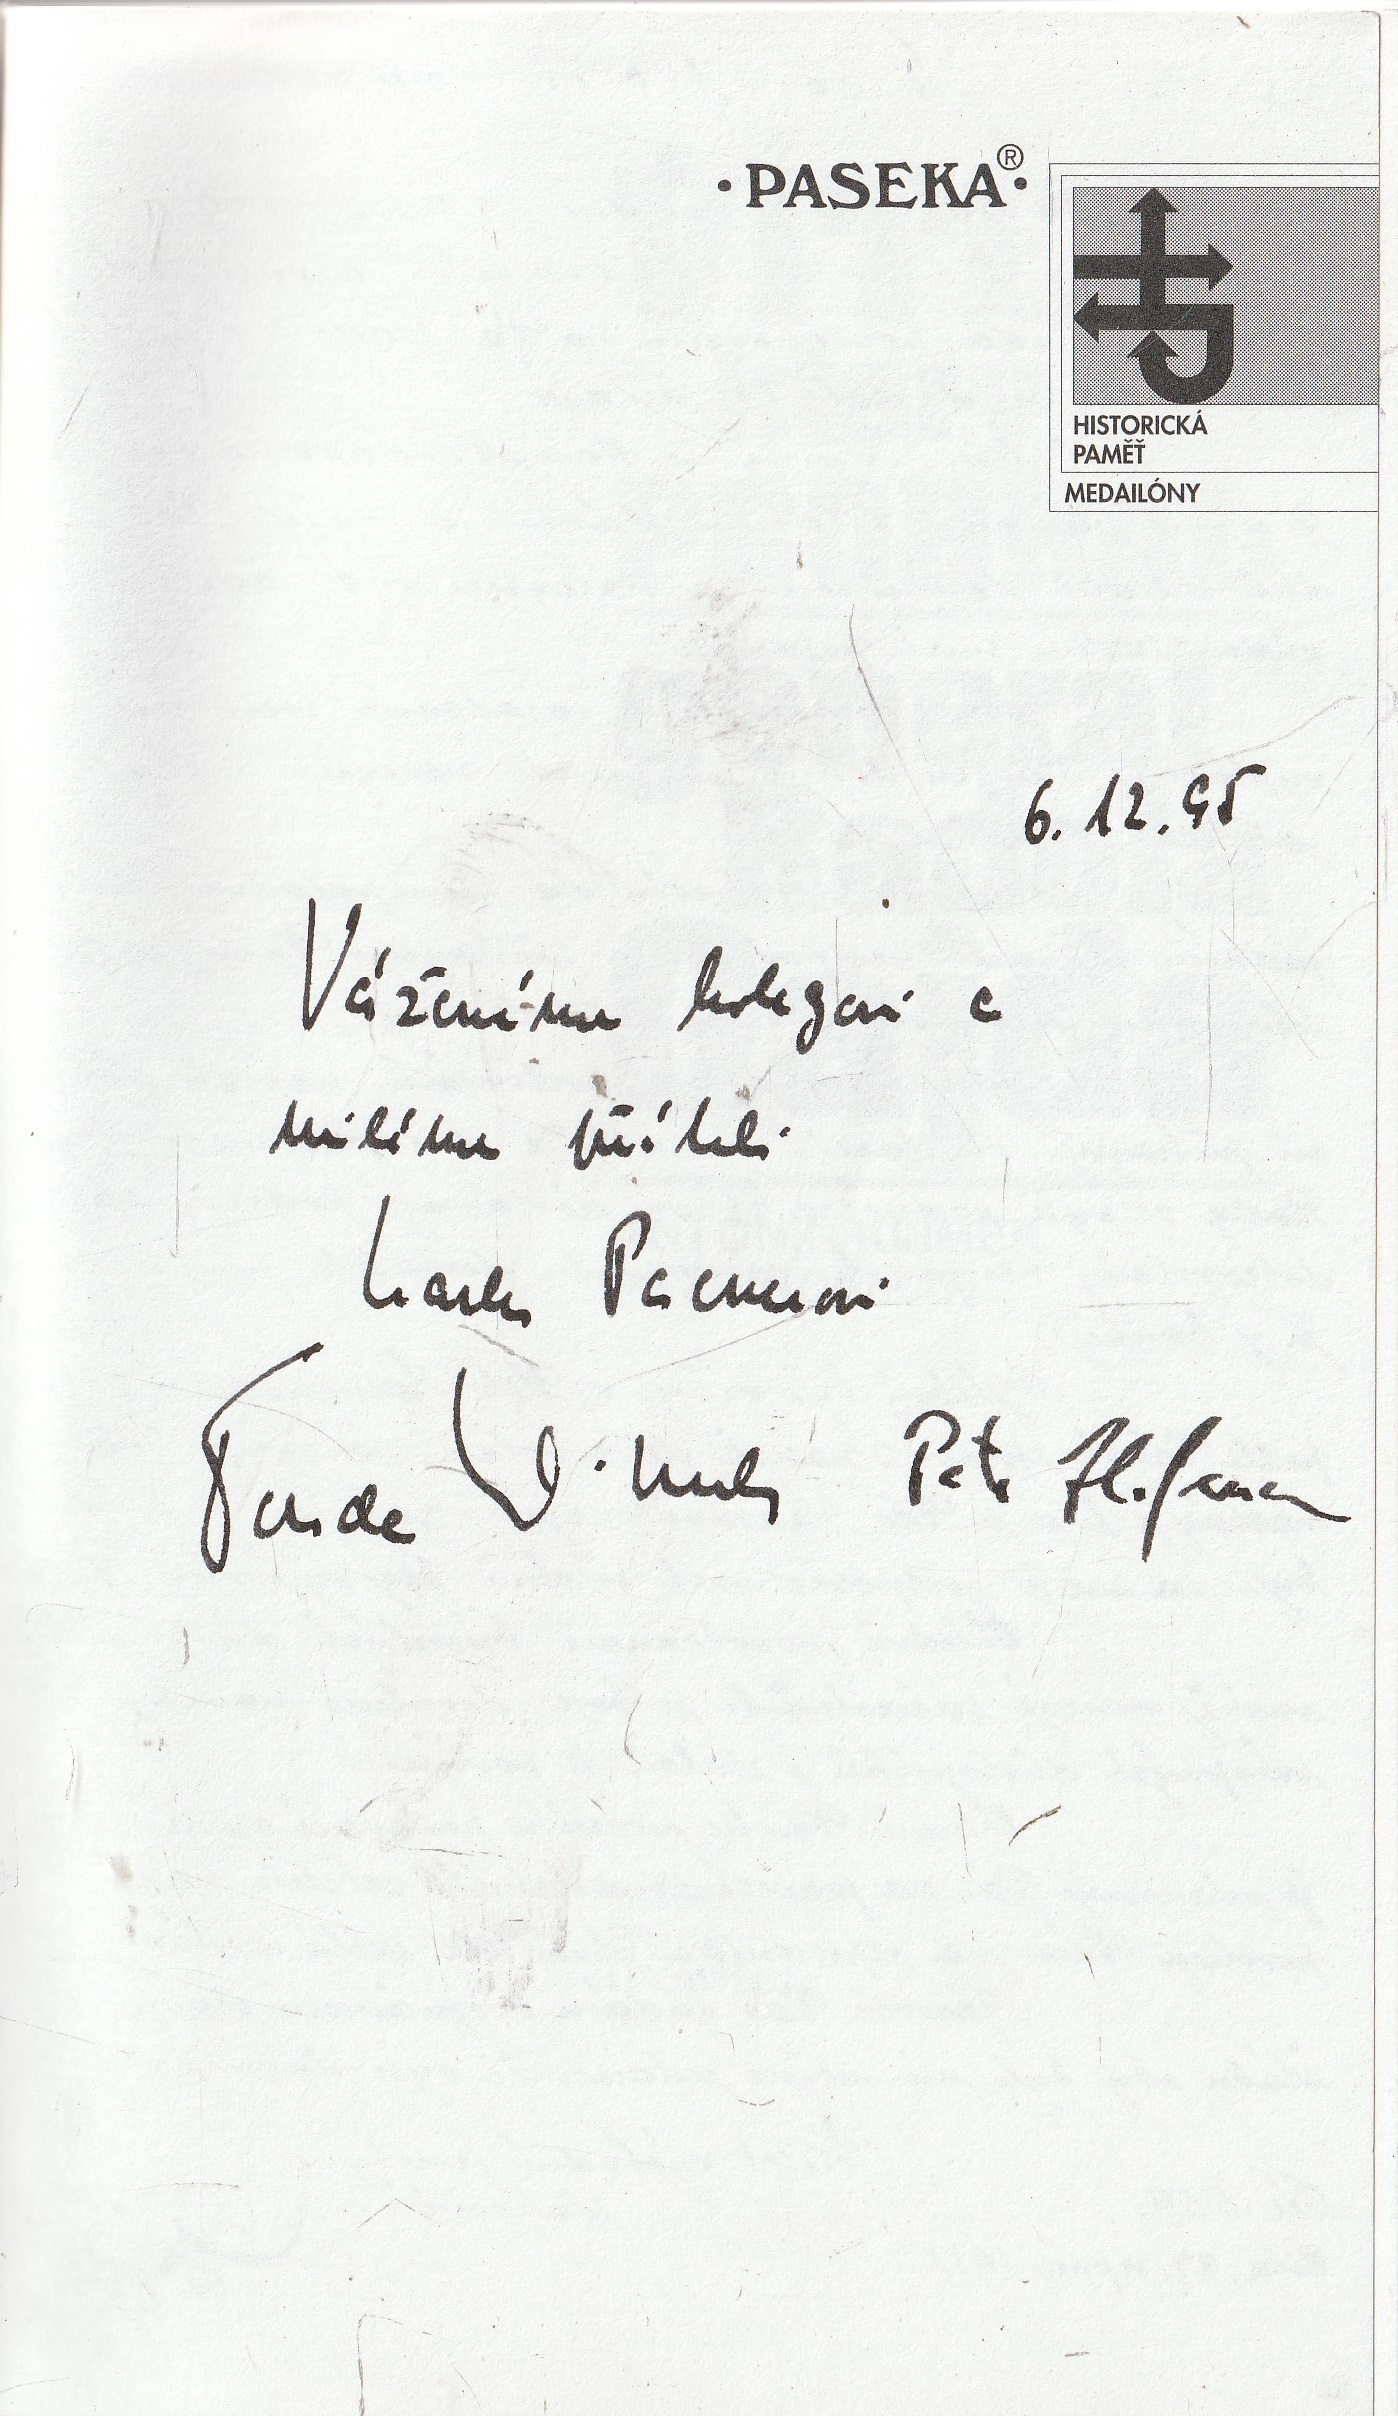 · PASEKA® ·
HISTORICKÁ
PAMĚŤ
MEDAILÓNY
6. 12. 95
Váženému kolegovi a
milému příteli
Pacnerovi
Petr